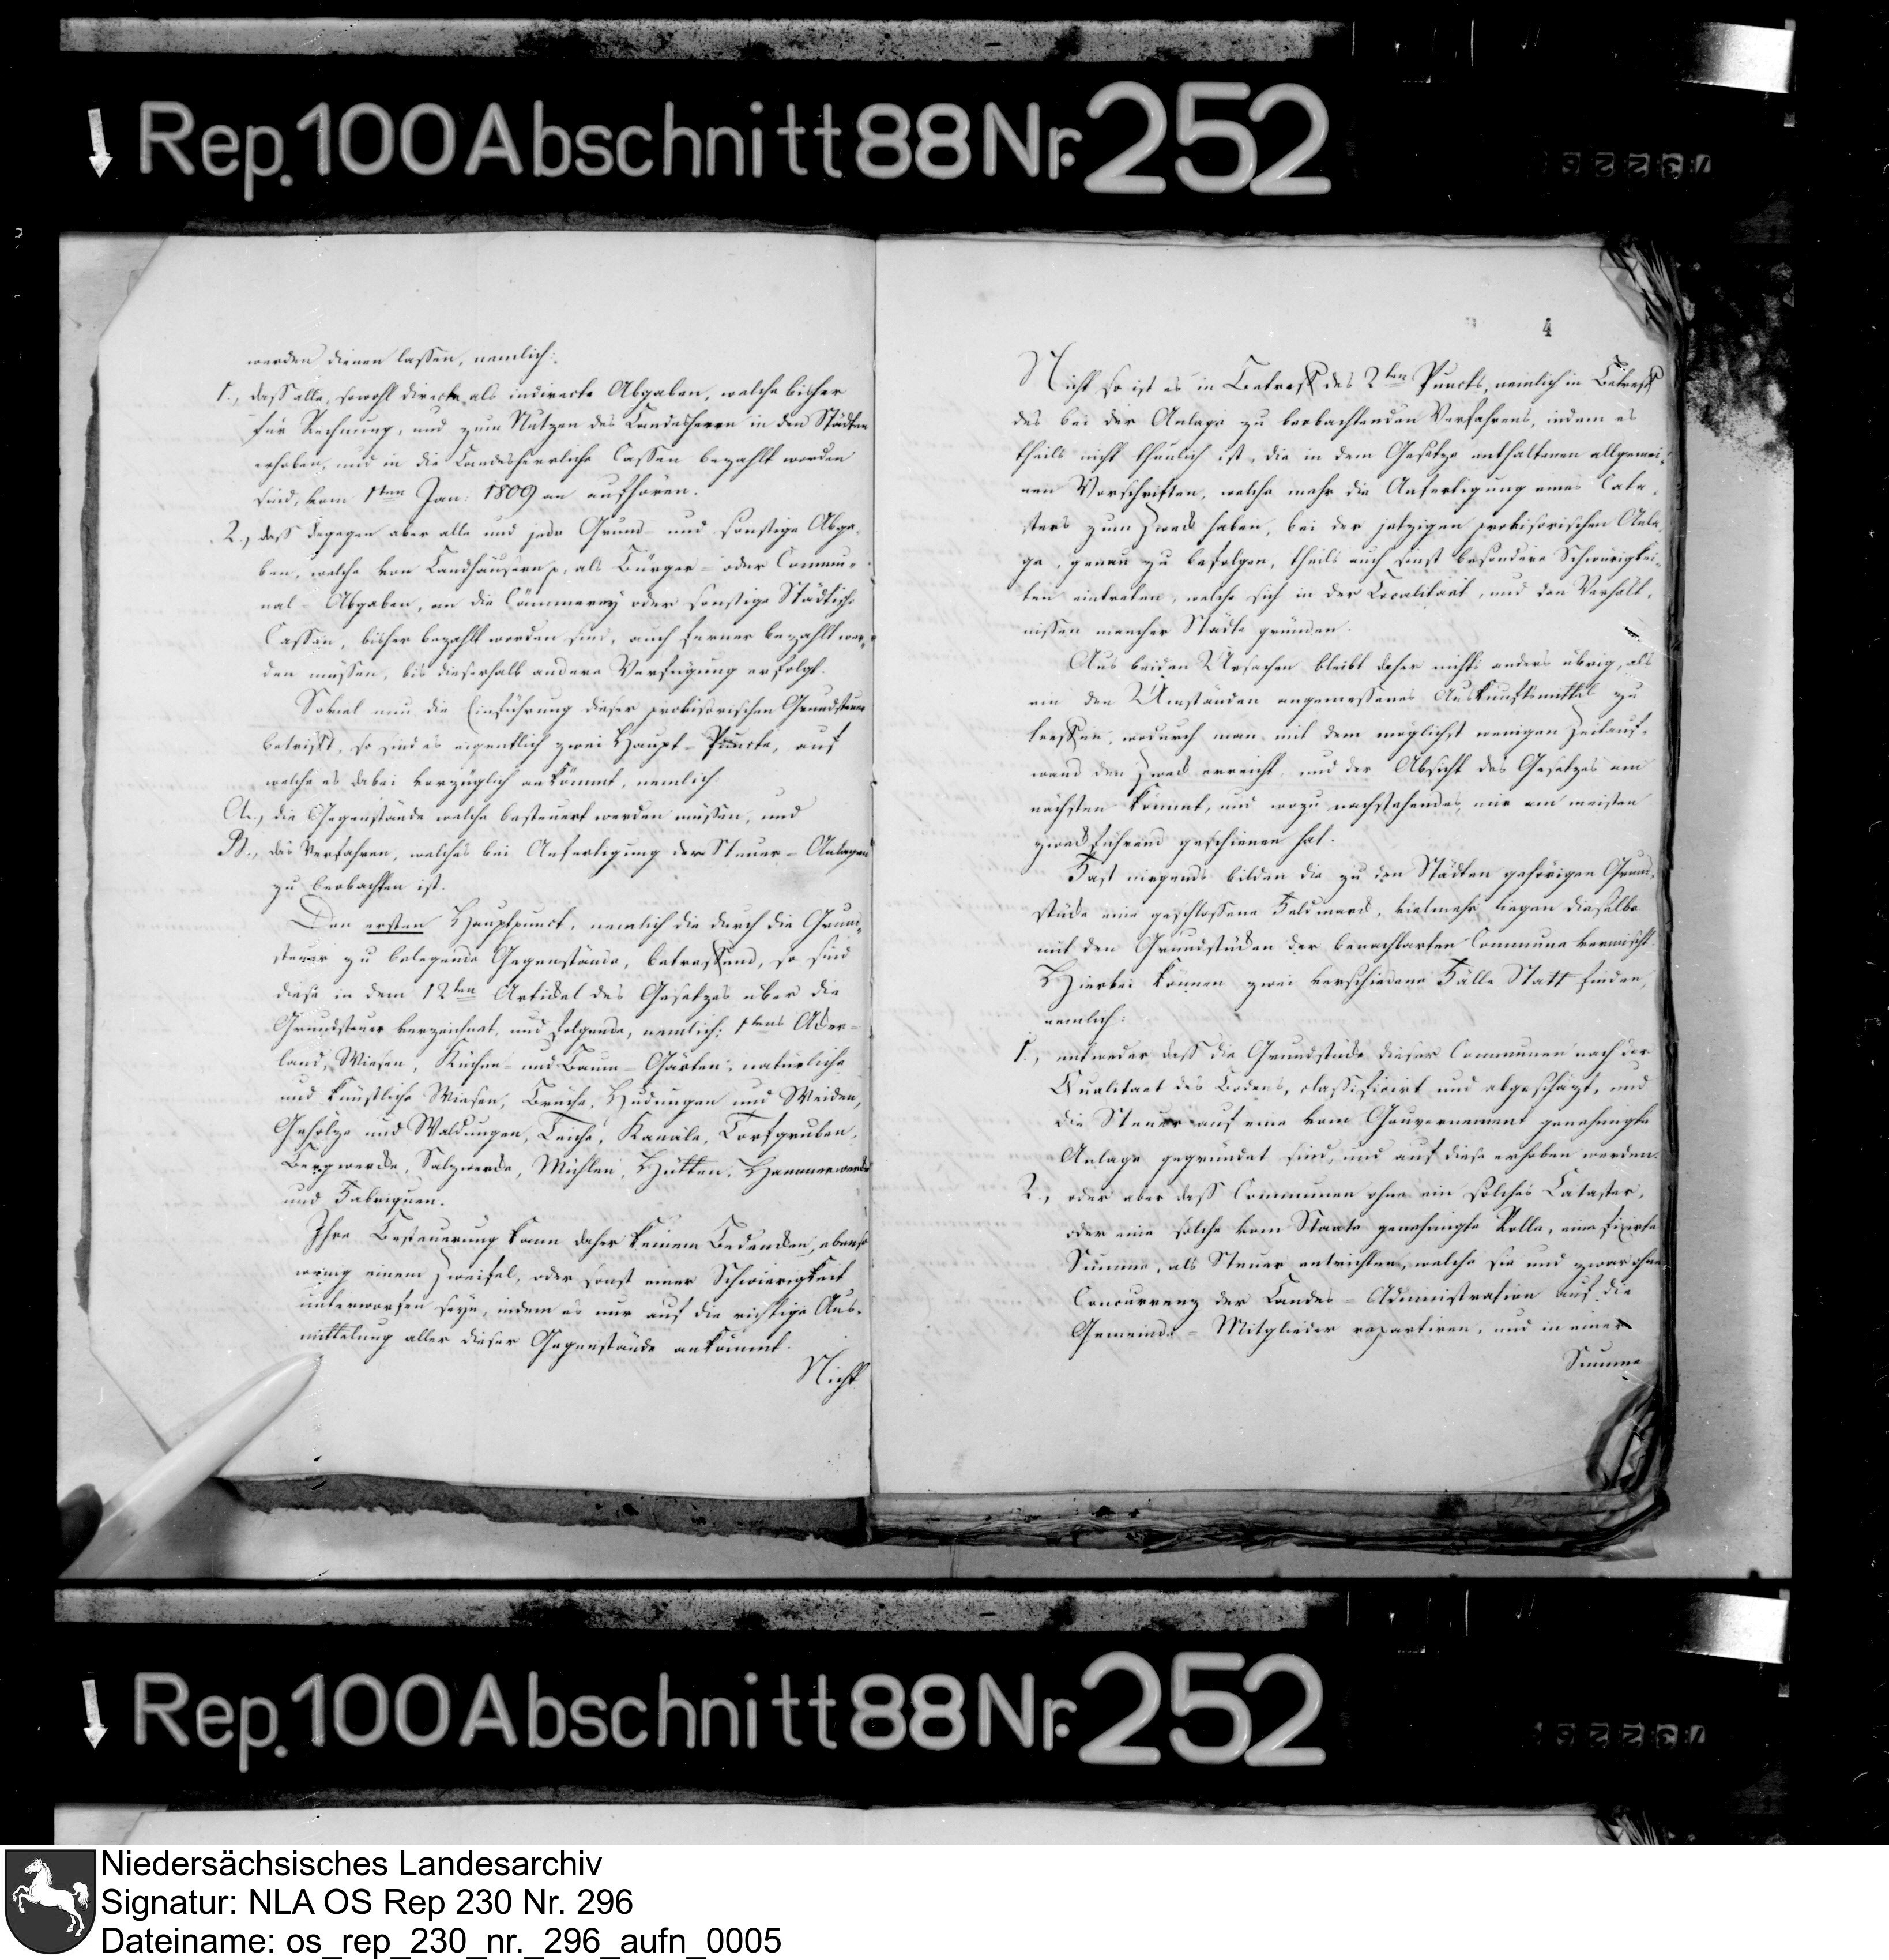 Rep. 100 Abschnitt 88 Nr. 252
werden dienen lassen, nemlich:
1., dass alle, sowohl directe als indirecte Abgaben, welche bisher
für Rechnung, und zum Nutzen des Landesherrn in den Städten
erhoben, und in die Landesherrliche Cassen bezahlt worden
sind, vom 1ten Jan: 1809 an aufhören.
2., dass dagegen aber alle und jede Grund- und sonstige Abga-
ben, welche von Landhäusern p, als Bürger- oder Commu-
nal-Abgaben, an die Cämmerey oder sonstige Städtische
Cassen, bisher bezahlt worden sind, auch ferner bezahlt wer-
den müssen, bis dieserhalb andere Verfügung erfolgt.
Soviel nun die Einführung dieser provisorischen Grundsteuer
betrifft, so sind es eigentlich zwei Haupt-Puncte, auf
welche es dabei vorzüglich ankömmt, nemlich:
A., die Gegenstände welche besteuert werden müssen, und
B., das Verfahren, welches bei Anfertigung der Steuer-Anlagen
zu beobachten ist.
Den ersten Hauptpunct, nemlich die durch die Grund-
steuer zu belegende Gegenstände, betreffend, so sind
diese in dem 12ten Artickel des Gesetzes über die
Grundsteuer verzeichnet, und folgende, nemlich: 1tens Acker-
land, Wiesen, Küchen- und Baum-Gärten, natürliche
und künstliche Wiesen, Brüche, Hudungen und Weiden,
Gehölze und Waldungen, Teiche, Kanäle, Torfgruben,
Bergwercke, Salzwercke, Mühlen, Hütten, Hammerwercke
und Fabriquen.
Ihre Besteuerung kann daher keinem Bedencken, ebenso
wenig einem Zweifel, oder sonst einer Schwierigkeit
unterworfen seyn, indem es nur auf die richtige Aus-
mittelung aller dieser Gegenstände ankömmt.
Nicht
4
Nicht so ist es in Betreff des 2ten Puncts, nemlich in Betreff
des bei der Anlage zu beobachtenden Verfahrens, indem es
theils nicht thunlich ist, die in dem Gesetze enthaltenen allgemei-
nen Vorschriften, welche mehr die Anfertigung eines Cata-
sters zum Zweck haben, bei der jetzigen provisorischen Anla-
ge, genau zu befolgen, theils auch sonst besondere Schwierigkei-
ten eintreten, welche sich in der Localitaet, und den Verhält-
nissen mancher Städte gründen.
Aus beiden Ursachen bleibt daher nichts anders übrig, als
ein den Umständen angemessenes Auskunftsmittel zu
treffen, wodurch man mit dem möglichst wenigen Zeitauf-
wand den Zweck erreicht, und der Absicht des Gesetzes am
nächsten kömmt, und wozu nachstehendes mir am meisten
zweckführend geschienen hat.
Fast nirgends bilden die zu den Städten gehörigen Grund-
stücke eine geschlossene Feldmarck, vielmehr liegen dieselbe
mit den Grundstücken der benachbarten Commune vermischt.
Hierbei können zwei verschiedene Fälle Statt finden,
nemlich:
1., entweder dass die Grundstücke dieser Communen nach der
Qualitaet des Bodens, classificirt und abgeschäzt, und
die Steuer auf eine vom Gouvernement genehmigte
Anlage gegründet sind, und auf diese erhoben werden.
2., oder aber dass Communen ohne ein solches Cataster,
oder eine solche vom Staate genehmigte Rolle, eine fixirte
Summe, als Steuer entrichten, welche sie und zwar ohne
Concurrenz der Landes-Administration auf die
Gemeinde-Mitglieder repartiren, und in einer
Summe
Rep. 100 Abschnitt 88 Nr. 252
Niedersächsisches Landesarchiv
Signatur: NLA OS Rep 230 Nr. 296
Dateiname: os_rep_230_nr._296_aufn_0005